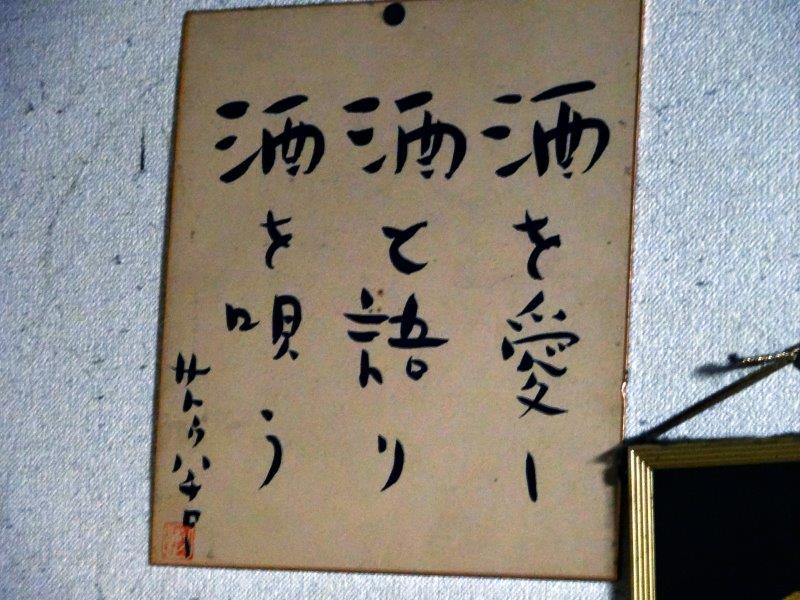 酒を愛し
酒と語り
酒を唄う
サトウハチロー